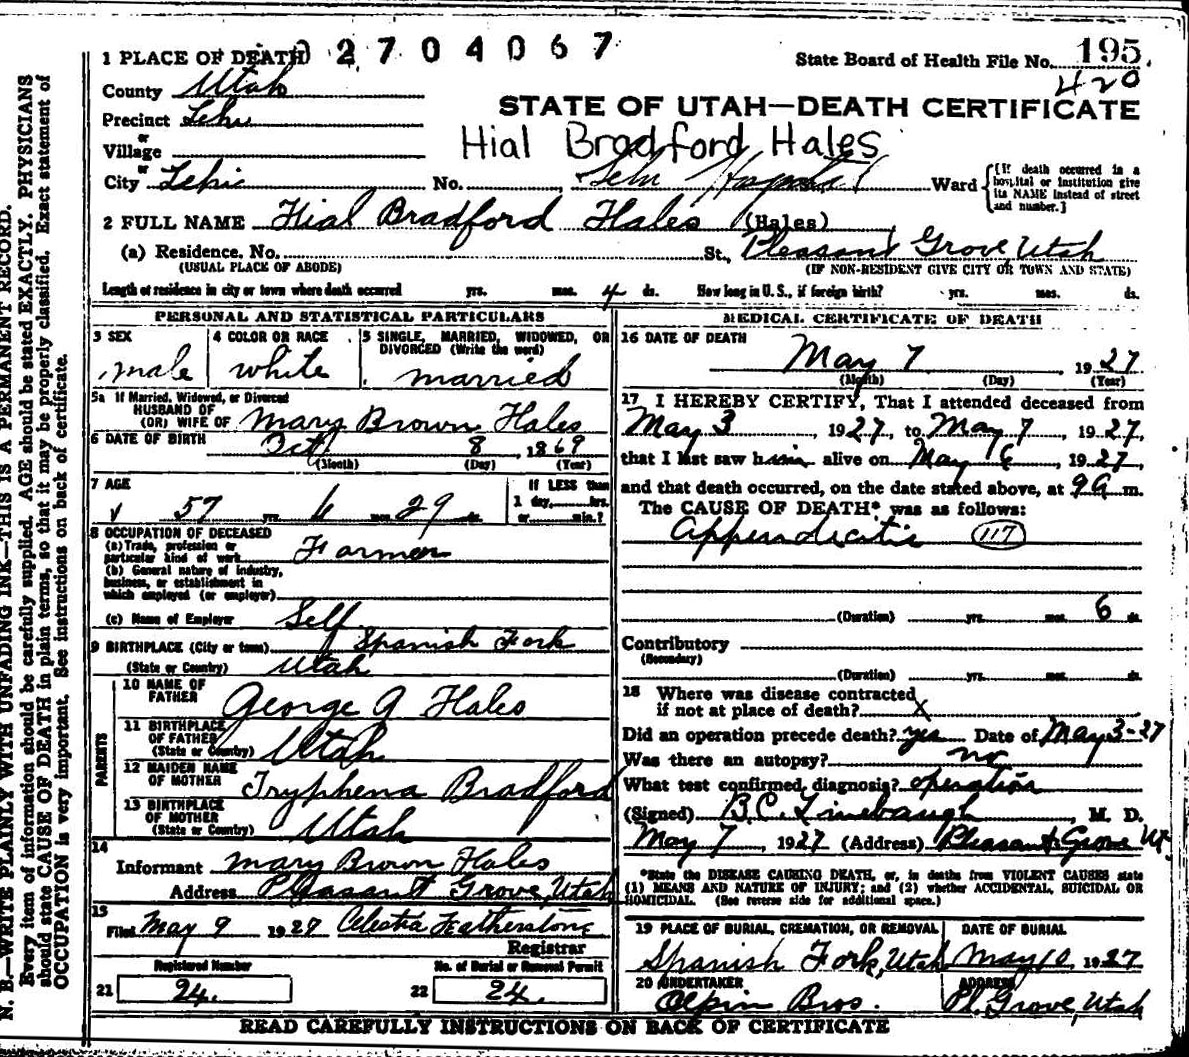 1 PLACE OF DEATH 2704067
State Board of Health File No. 195
420
County Utah
STATE OF UTAH—DEATH CERTIFICATE
Precinct Lehi
or
Village
Hial Bradford Hales
or
City Lehi No. Lehi Hospital Ward
[If death occurred in a hospital or institution give its NAME instead of street and number.]
2 FULL NAME Hial Bradford Hales (Hales)
(a) Residence. No. St., Pleasant Grove, Utah
(USUAL PLACE OF ABODE) (IF NON-RESIDENT GIVE CITY OR TOWN AND STATE)
Length of residence in city or town where death occurred yrs. mos. 4 ds. How long in U. S., if foreign birth? yrs. mos. ds.
PERSONAL AND STATISTICAL PARTICULARS
3 SEX 4 COLOR OR RACE 5 SINGLE, MARRIED, WIDOWED, OR DIVORCED (Write the word)
male white married
5a If Married, Widowed, or Divorced
HUSBAND OF
(OR) WIFE OF Mary Brown Hales
6 DATE OF BIRTH Oct 8, 1869
(Month) (Day) (Year)
7 AGE If LESS than
1 day, hrs.
57 yrs. 6 mos. 29 ds. or min.?
8 OCCUPATION OF DECEASED
(a) Trade, profession or
particular kind of work Farmer
(b) General nature of industry,
business, or establishment in
which employed (or employer)
(c) Name of Employer Self
9 BIRTHPLACE (City or town) Spanish Fork
(State or Country) Utah
PARENTS
10 NAME OF
FATHER George G Hales
11 BIRTHPLACE
OF FATHER
(State or Country) Utah
12 MAIDEN NAME
OF MOTHER Tryphena Bradford
13 BIRTHPLACE
OF MOTHER
(State or Country) Utah
14
Informant Mary Brown Hales
Address Pleasant Grove, Utah
15
Filed May 9 1927 Celestia Featherstone
Registrar
Registered Number No. of Burial or Removal Permit
21 24. 22 24.
MEDICAL CERTIFICATE OF DEATH
16 DATE OF DEATH
May 7 1927
(Month) (Day) (Year)
17 I HEREBY CERTIFY, That I attended deceased from
May 3 1927, to May 7, 1927,
that I last saw him alive on May 6, 1927,
and that death occurred, on the date stated above, at 9 a m.
The CAUSE OF DEATH* was as follows:
Appendicitis 117
(Duration) yrs. mos. 6 ds.
Contributory
(Secondary)
(Duration) yrs. mos. ds.
18 Where was disease contracted
if not at place of death? X
Did an operation precede death? yes Date of May 3-27
Was there an autopsy? no
What test confirmed diagnosis? operation
(Signed) B.C. Linebaugh, M. D.
May 7, 1927 (Address) Pleasant Grove Ut.
*State the DISEASE CAUSING DEATH, or, in deaths from VIOLENT CAUSES state
(1) MEANS AND NATURE OF INJURY; and (2) whether ACCIDENTAL, SUICIDAL OR
HOMICIDAL. (See reverse side for additional space.)
19 PLACE OF BURIAL, CREMATION, OR REMOVAL DATE OF BURIAL
Spanish Fork, Utah May 10, 1927
20 UNDERTAKER ADDRESS
Olpin Bros. Pl. Grove, Utah
READ CAREFULLY INSTRUCTIONS ON BACK OF CERTIFICATE
N. B.—WRITE PLAINLY WITH UNFADING INK—THIS IS A PERMANENT RECORD.
Every item of information should be carefully supplied. AGE should be stated EXACTLY. PHYSICIANS
should state CAUSE OF DEATH in plain terms, so that it may be properly classified. Exact statement of
OCCUPATION is very important. See instructions on back of certificate.